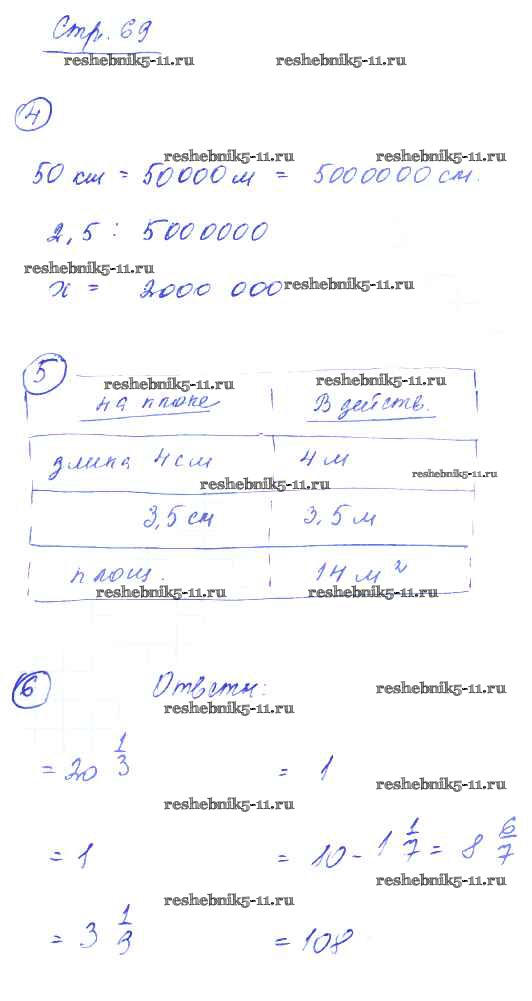 Стр. 69
reshebnik5-11.ru reshebnik5-11.ru
4
reshebnik5-11.ru reshebnik5-11.ru
50 км = 50000 м = 5000000 см.
2,5 : 5000000
reshebnik5-11.ru
x = 2000 000 reshebnik5-11.ru
5
reshebnik5-11.ru reshebnik5-11.ru
на плане В действ.
длина 4 см 4 м
reshebnik5-11.ru
reshebnik5-11.ru
3,5 см 3,5 м
площ. 14 м²
reshebnik5-11.ru reshebnik5-11.ru
6 Ответы:
reshebnik5-11.ru
reshebnik5-11.ru
= 20 1/3 = 1
reshebnik5-11.ru
reshebnik5-11.ru
= 1 = 10 - 1 1/7 = 8 6/7
reshebnik5-11.ru
reshebnik5-11.ru
= 3 1/3 = 108
reshebnik5-11.ru